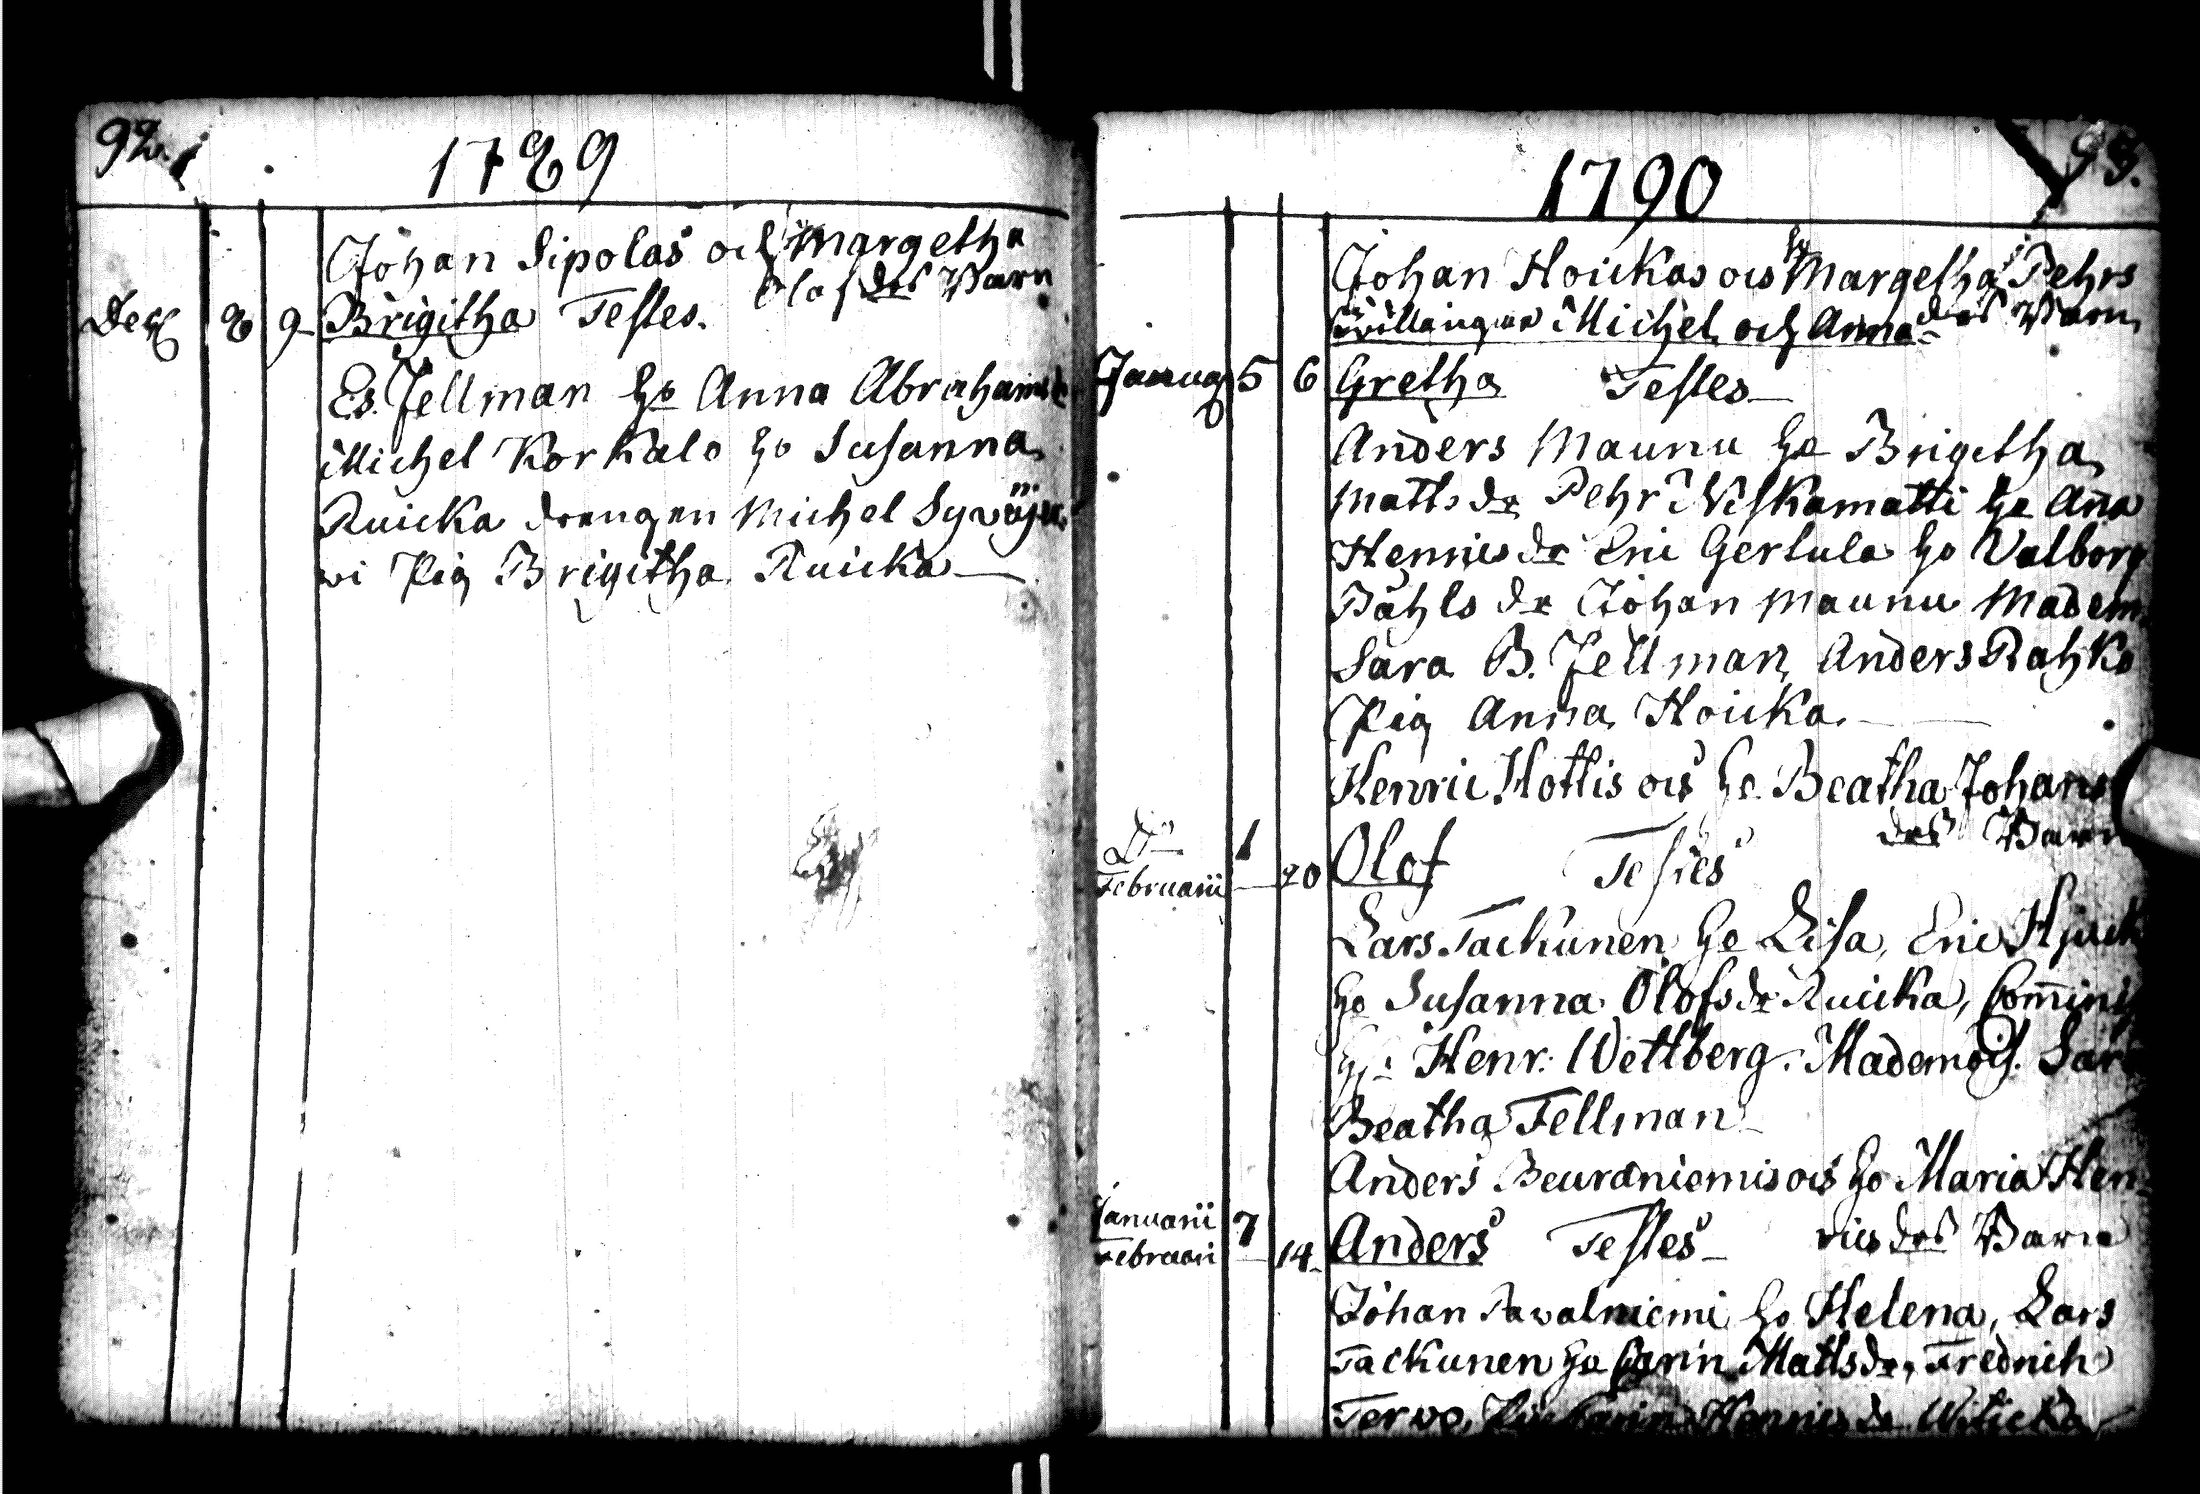 92.
1789
Johan Sipolas och Margetha
Olofsdrs Barn
Decb 8 9 Brigitha Testes.
Es. Fellman Ho Anna Abrahams
Michel Korkalo ho Susanna
Ruicka drengen Michel Syväjer
wi Pig Brigitha Ruicka
93.
1790
Johan Hoickas och Hu Margetha Pehrs
Tvillingar Michel och Anna drs Barn
Januar 5 6 Gretha Testes
Anders Maunu Ho Brigitha
Matts dr Pehr Niskamatti Ho Anna
Henrics dr Eric Gertula Ho Valborg
Påhls dr Johan Maunu Madem
Sara B. Fellman, Anders Rahko
Pig Anna Hoicka.
Henric Hottis och Ho Beatha Johans
drs Barn
Do 1 Olof Testes
Februarii 20
Lars Tackunen Ho Lisa, Eric
Ho Susanna Olofsdr Ruicka, Comminis
Hr. Henr. Wettberg. Mademois. Sara
Beatha Fellman
Anders Beuraniemis och Ho Maria Hen
Januarii 7 Anders Testes rics drs Barn
Februari 14
Johan Pawalniemi Ho Helena, Lars
Tackunen Ho Carin Mattsdr, Fredrich
Terwo, Pig Carin Henrics dr